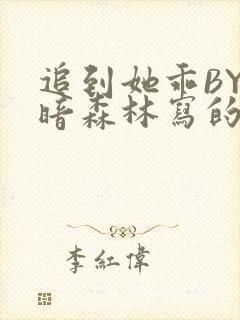 追到她乖BY
暗森林寫的
李紅偉